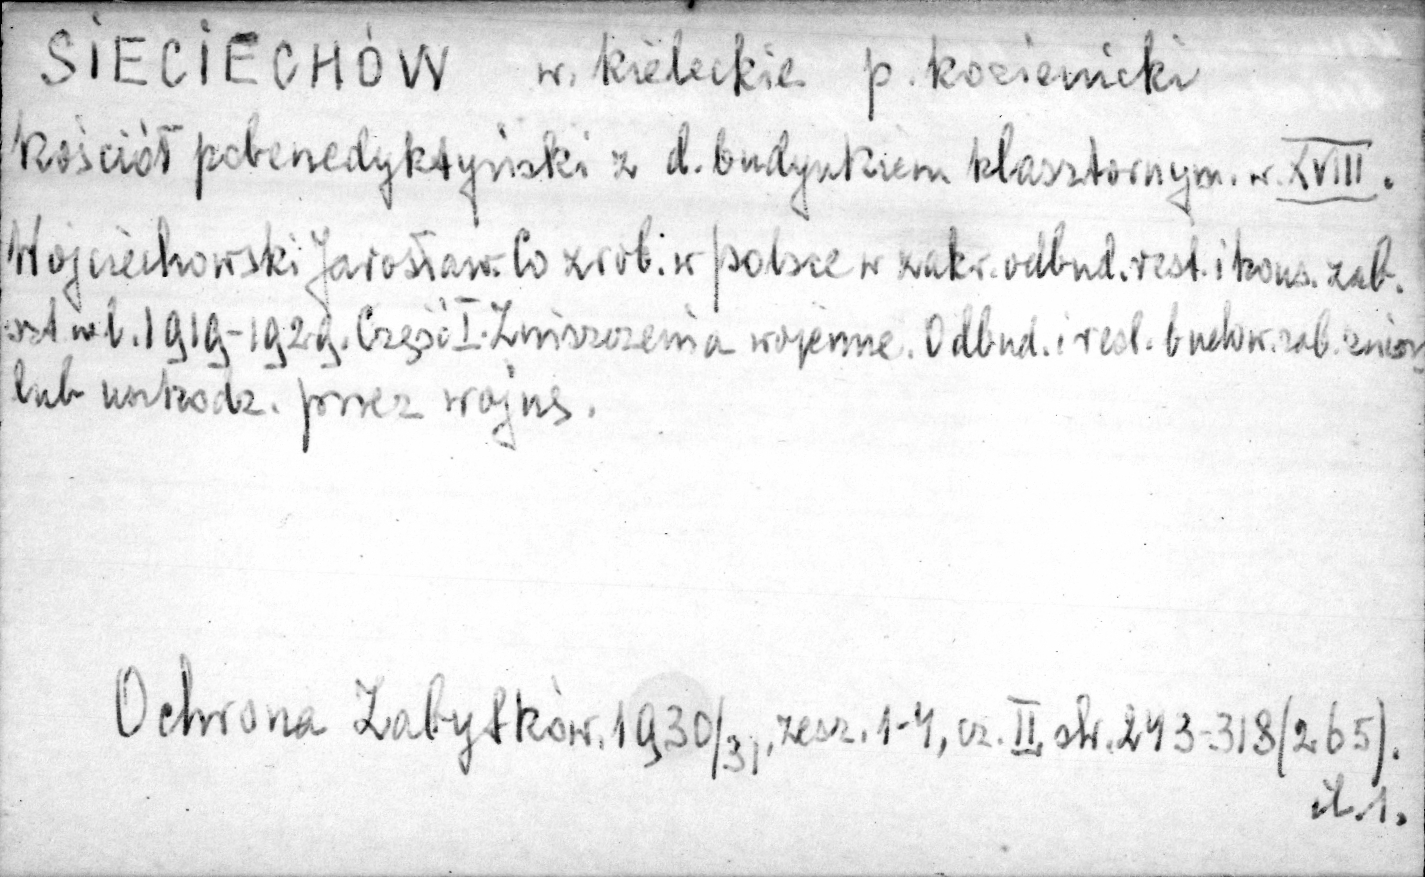 SIECIECHÓW w. kieleckie p. kozienicki
Kościół pobenedyktyński z d. budynkiem klasztornym. w. XVIII.
Wojciechowski Jarosław. Co zrob. w Polsce w zakr. odbud. rest. i kons. zab.
szt. w l. 1919-1929. Część I. Zniszczenia wojenne. Odbud. i rest. budow. zab. zniszcz
lub uszkodz. przez wojnę.
Ochrona Zabytków. 1930/31, zesz. 1-4, cz. II, str. 243-318 (265).
il. 1.